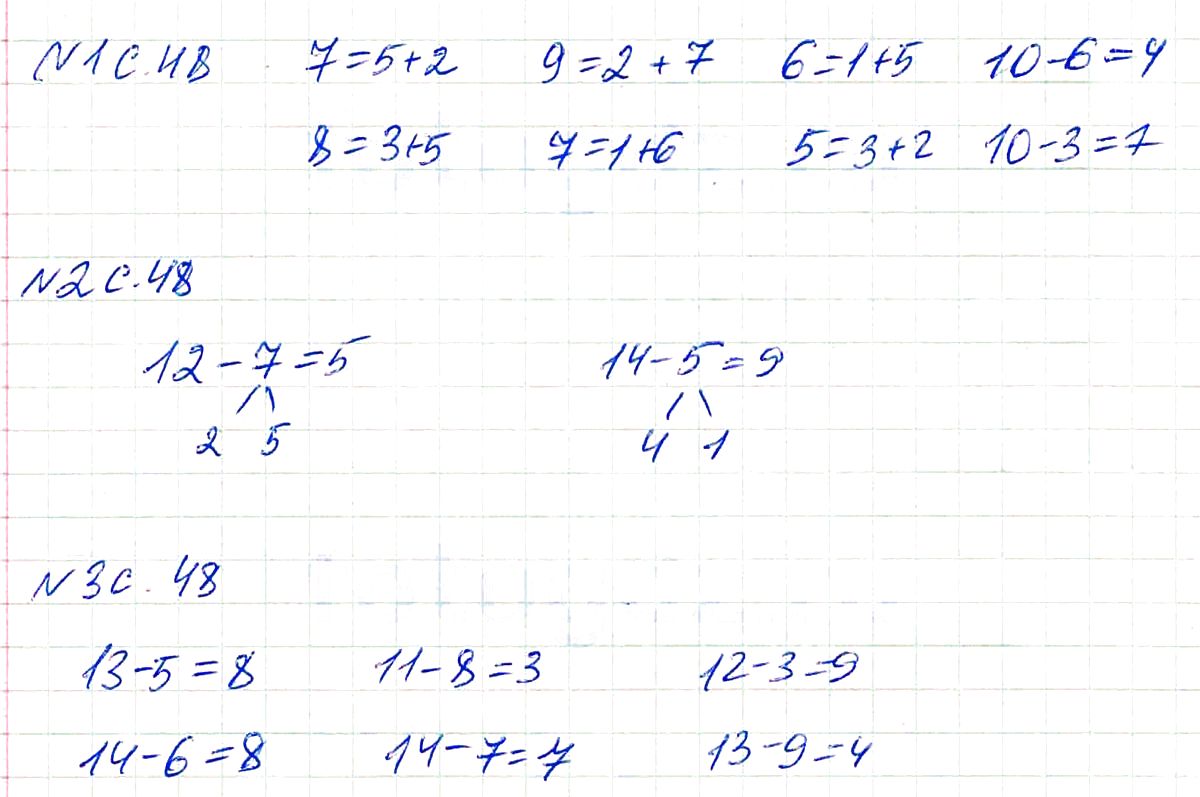 N1 с.48 7=5+2 9=2+7 6=1+5 10-6=4
8=3+5 7=1+6 5=3+2 10-3=7
N2 с.48
12-7=5 14-5=9
2 5 4 1
N3 с.48
13-5=8 11-8=3 12-3=9
14-6=8 14-7=7 13-9=4